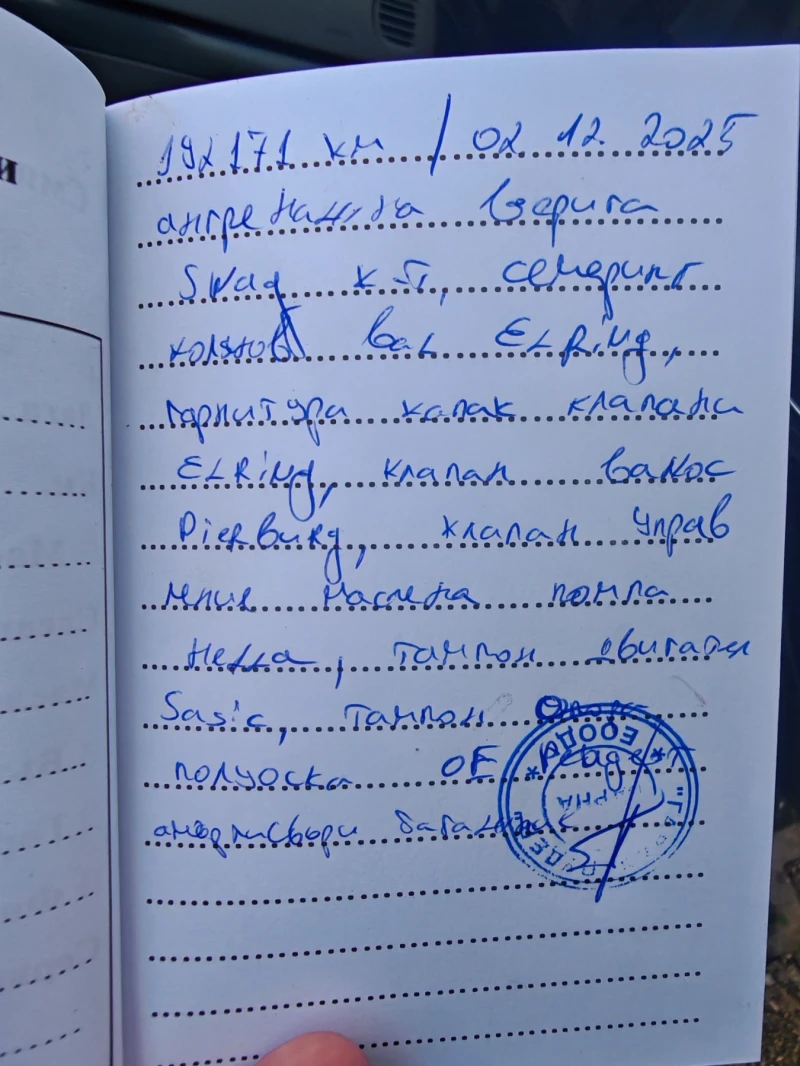 192171 км / 02 12. 2025
ангренажна верига
Swag к-т, семеринг
колянов вал ELRiNg,
гарнитура капак клапани
ELRiNg, клапан ванос
PierBurg, клапан управ
ления маслена помпа
Hella, тампон двигател
Sasic, тампон
полуоска OE Peugeot
амортисьори багажник
ЕООД
ВАРНА